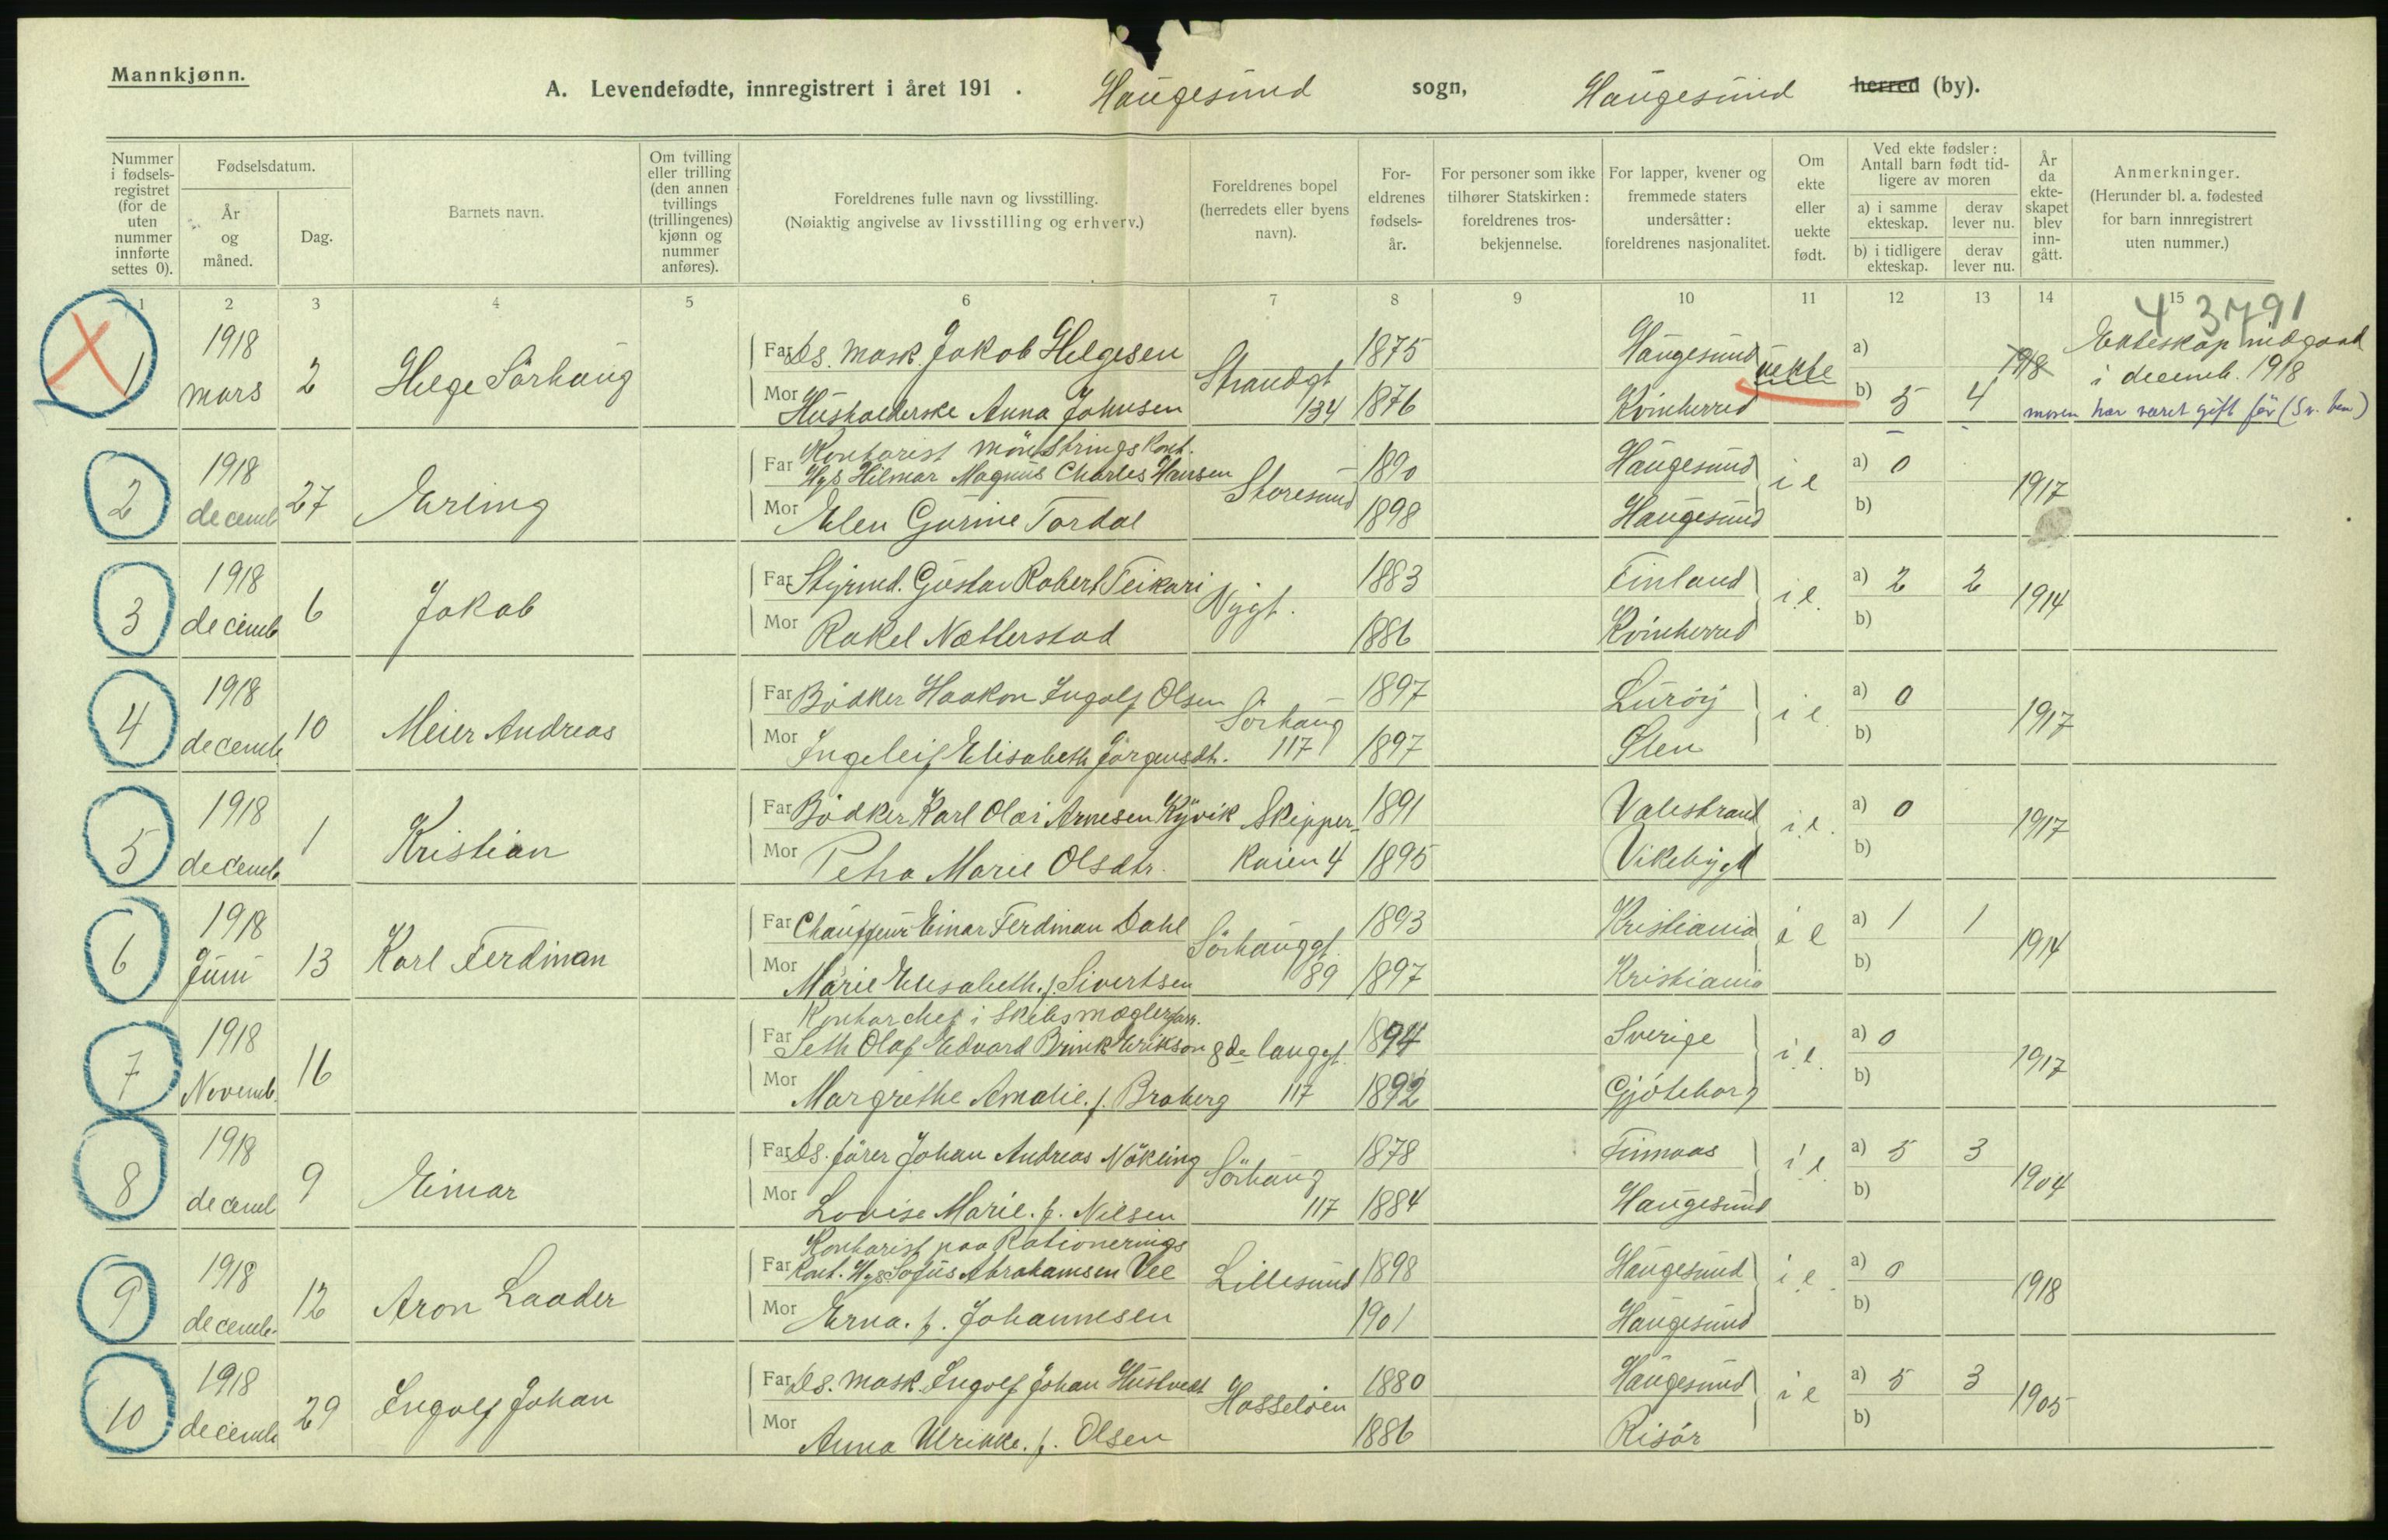 Mannkjønn.
A. Levendefødte, innregistrert i året 191 . Haugesund sogn, Haugesund herred (by).
Nummer i fødsels-registret (for de uten nummer innførte settes 0).
Fødselsdatum.
År og måned.
Dag.
Barnets navn.
Om tvilling eller trilling (den annen tvillings (trillingenes) kjønn og nummer anføres).
Foreldrenes fulle navn og livsstilling.
(Nøiaktig angivelse av livsstilling og erhverv.)
Foreldrenes bopel (herredets eller byens navn).
For-eldrenes fødsels-år.
For personer som ikke tilhører Statskirken: foreldrenes tros-bekjennelse.
For lapper, kvener og fremmede staters undersåtter: foreldrenes nasjonalitet.
Om ekte eller uekte født.
Ved ekte fødsler: Antall barn født tid-ligere av moren
a) i samme ekteskap. derav lever nu.
b) i tidligere ekteskap. derav lever nu.
År da ekte-skapet blev inn-gått.
Anmerkninger.
(Herunder bl. a. fødested for barn innregistrert uten nummer.)
1 2 3 4 5 6 7 8 9 10 11 12 13 14 15
43791
1 1918 mars 2 Helge Sörhaug
Far Ds. mask. Jakob Helgesen Strandgt 1875 Haugesund uekte a) 1918 Ekteskap indgaat i decemb. 1918
Mor Husholderske Anna Johnsen 134 1876 Kvinherred b) 5 4 moren har været gift før
2 1918 decemb 27 Erling
Kontorist mönstringskont.
Far Hilmar Magnus Charles Hansen Storesund 1890 Haugesund i e a) 0 1917
Mor Elen Gurine Tordal 1898 Haugesund b)
3 1918 decemb 6 Jakob
Far Styrmd. Gustav Robert Teikari Nygt. 1883 Finland i.e. a) 2 2 1914
Mor Rakel Nætterstad 1886 Kvinherred b)
4 1918 decemb. 10 Meier Andreas
Far Bödker Haakon Ingolf Olsen Sörhaug 1897 Luröy i e. a) 0 1917
Mor Ingeleif Elisabeth Jörgensdt. 117 1897 Ölen b)
5 1918 decemb 1 Kristian
Far Bödker Karl Olai Arnesen Kyvik Skipper- 1891 Valestrand i.e. a) 0 1917
Mor Petra Marie Olsdtr. kaien 4 1895 Vikebygd b)
6 1918 Juni 13 Karl Ferdinan
Far Chauffeur Einar Ferdinan Dahl Sörhauggt. 1893 Kristiania i e a) 1 1 1914
Mor Marie Elisabeth. f. Sivertsen 89 1897 Kristiania b)
7 1918 Novemb. 16
Kontorchef i Skibsmæglerforr.
Far Seth Olaf Edvard Brink Erikson 8de langgt. 1894 Sverige i.e. a) 0 1917
Mor Margrethe Amalie. f. Broberg 117 1892 Gjøteborg b)
8 1918 decemb 9 Einar
Far Ds. förer Johan Andreas Nökling Sörhaug 1878 Finnaas i e. a) 5 3 1904
Mor Lovise Marie. f. Nilsen 117 1884 Haugesund b)
9 1918 decemb. 12 Aron Laader
Kontorist paa Rationerings
Far Kont. Sofus Abrahamsen Vee Lillesund 1898 Haugesund i e. a) 0 1918
Mor Erna. f. Johannesen 1901 Haugesund b)
10 1918 decemb 29 Ingolf Johan
Far Ds. mask. Ingolf Johan Hustvedt Hasseløen 1880 Haugesund i e a) 5 3 1905
Mor Anna Ulrikke. f. Olsen 1886 Risör b)